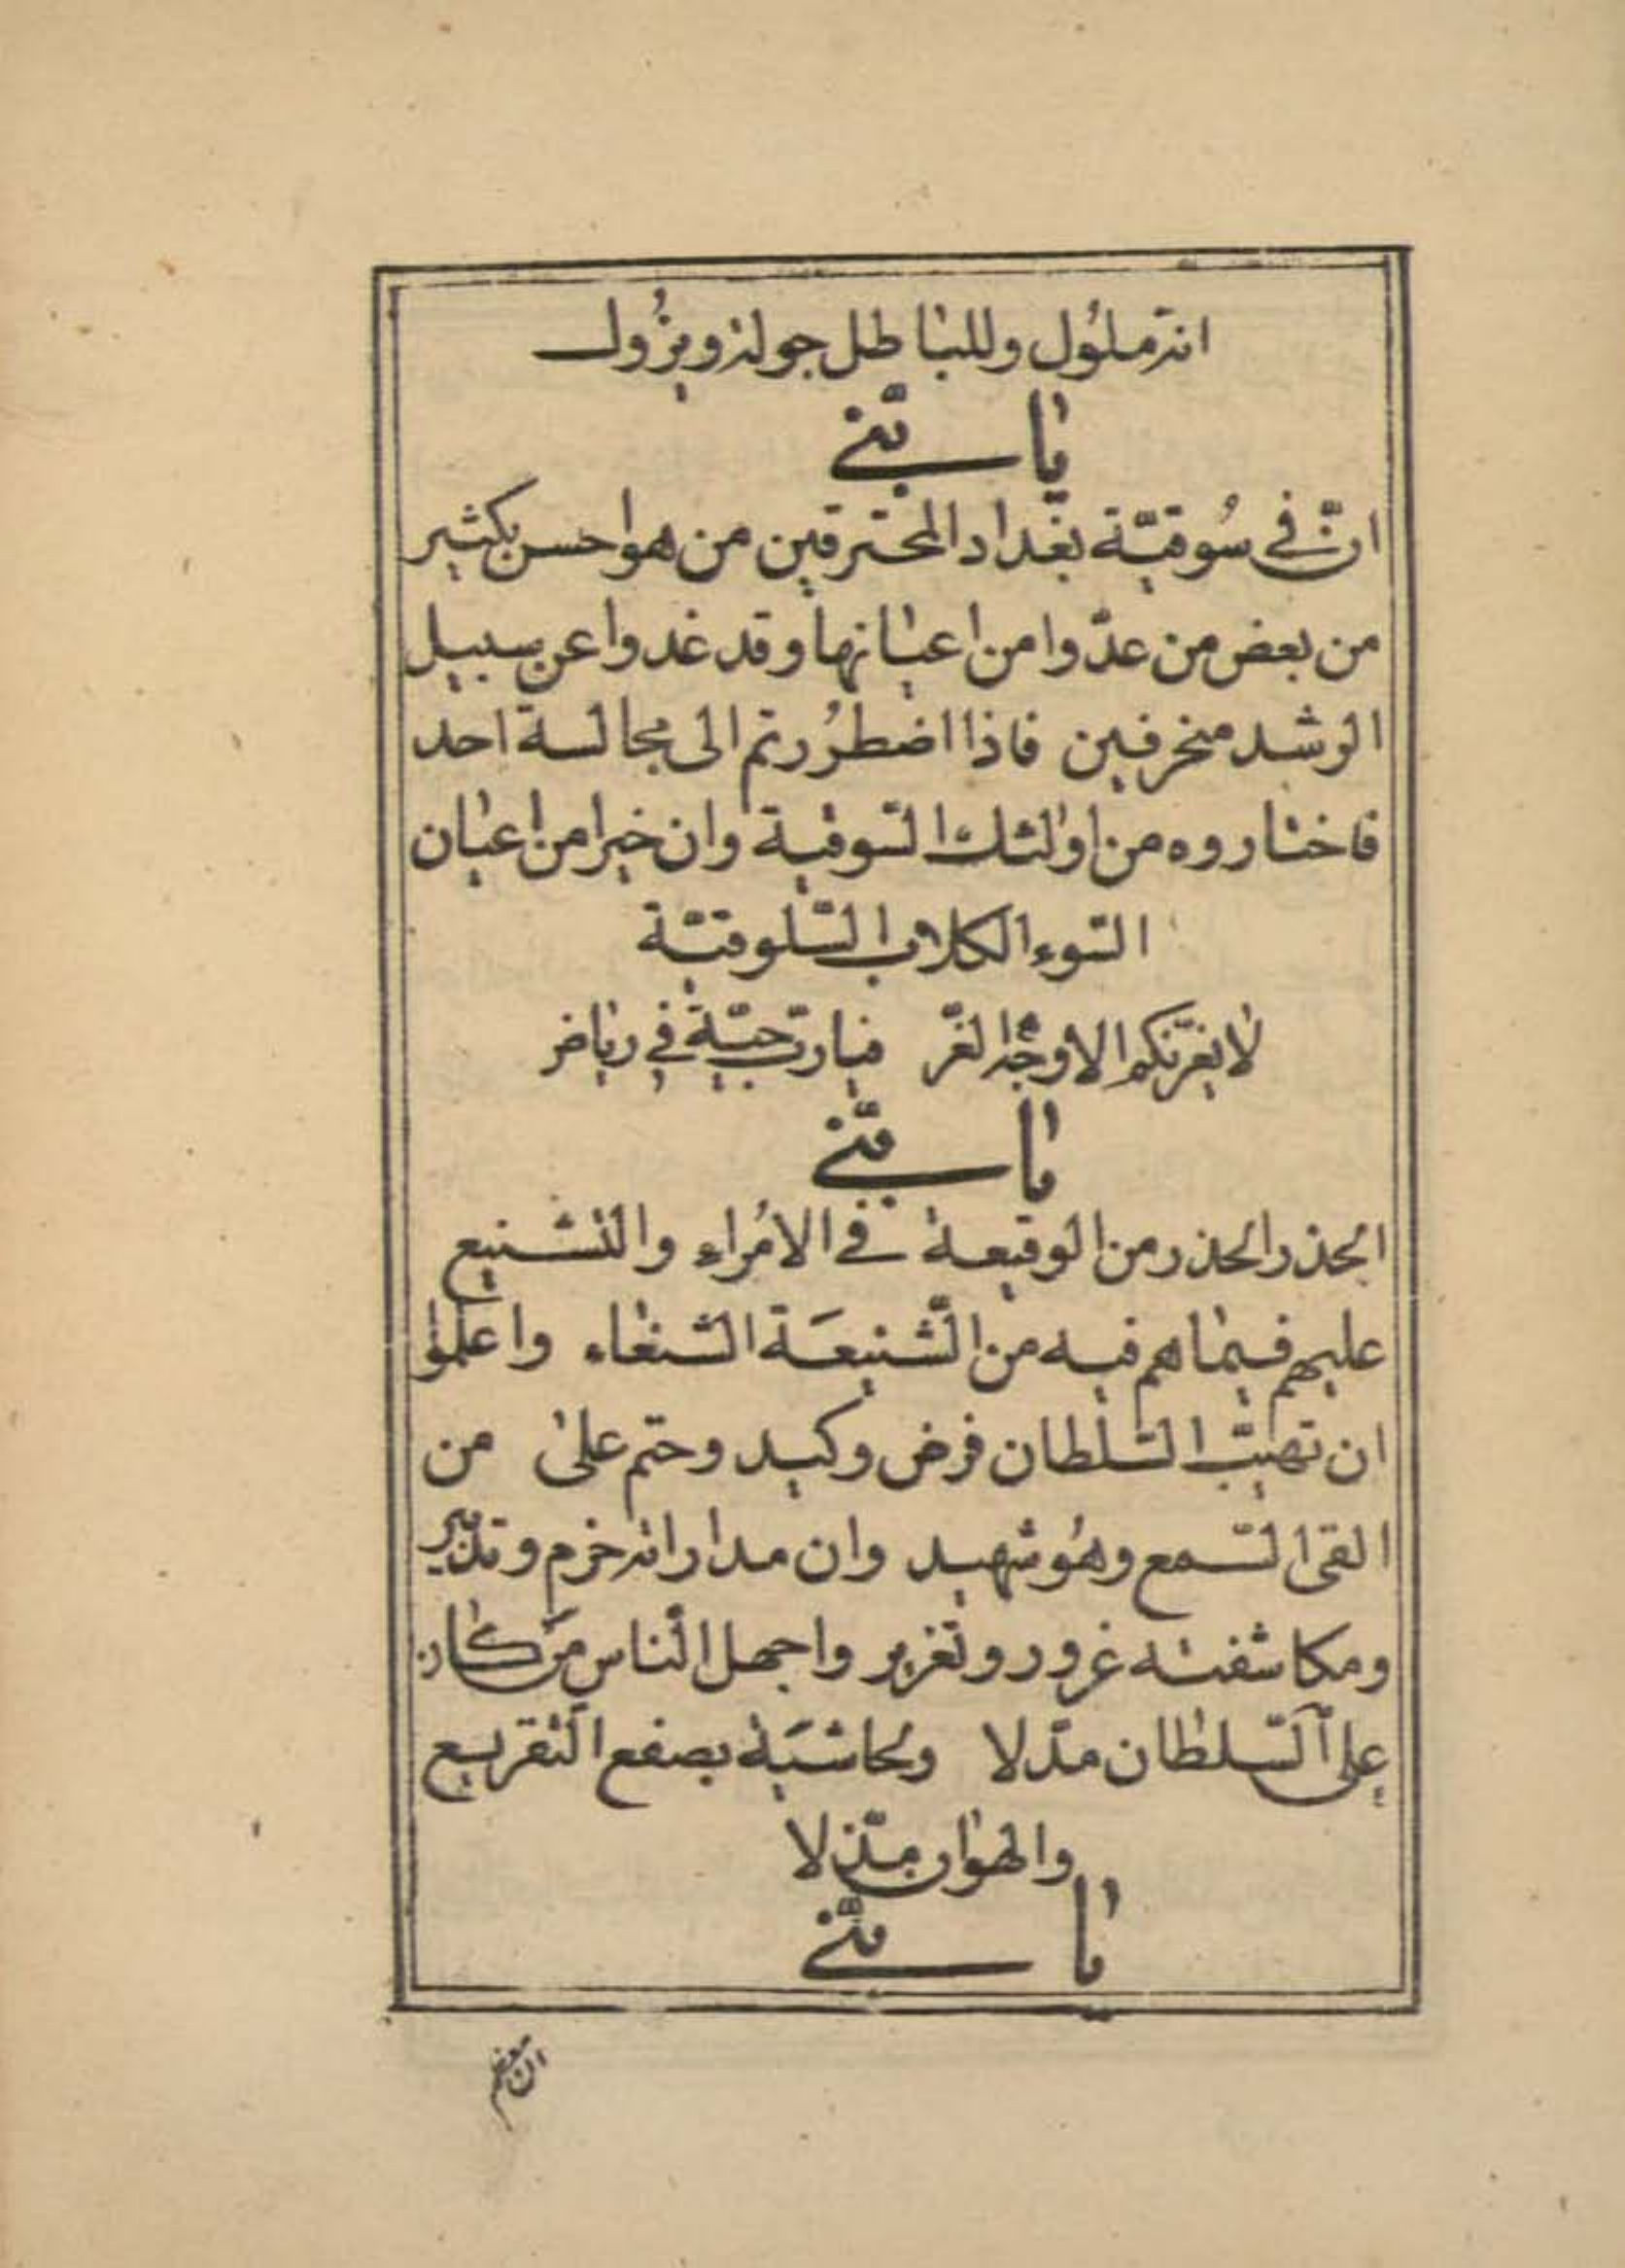 انه ملول وللباطل جولة ويزول
يا بنيّ
انّ في سُوقيّة بغداد المحترقين من هو احسن بكثير
من بعض من عدّوا من اعيانها وقد غدوا عن سبيل
الرشد منحرفين فاذا اضطرُرتم الى مجالسة احد
فاختاروه من اولئك السّوقية وان خيرا من اعيان
السّوء الكلاب السّلوقيّة
لا يغرّنكم الاوجُه الغرّ فيا ربّ حيّة في رياض
يا بنيّ
الحذر الحذر من الوقيعة في الامُراء والتشنيع
عليهم فيما هم فيه من الشّنيعَة الشنعاء واعلموا
ان تهيّب السّلطان فرض وكيد وحتم على من
القى السّمع وهُو شهيد وان مداراته حزم وتدبير
ومكاشفته غرور وتغرير واجهل النّاس مَن كان
على السّلطان مدّلا ولحاشيَة بصفع التقريع
والهوان مذّلا
يا بنيّ
ان بعضهم